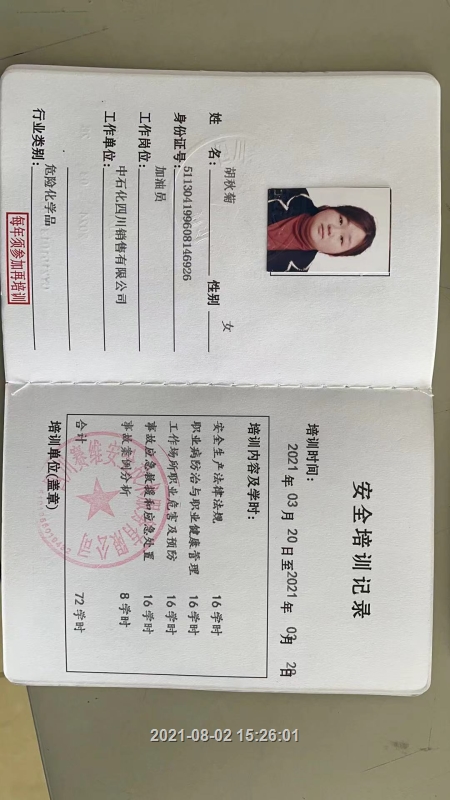 姓 名: 胡秋菊 性别 女
身份证号: 511304199608146926
工作岗位: 加油员
工作单位: 中石化四川销售有限公司
行业类别: 危险化学品
每年须参加再培训
安全培训记录
培训时间:
2021 年 03 月 20 日至2021 年 03 月 29 日
培训内容及学时:
安全生产法律法规 16 学时
职业病防治与职业健康管理 16 学时
工作场所职业危害及预防 16 学时
事故应急救援和应急处置 16 学时
事故案例分析 8 学时
合计 72 学时
培训单位(盖章)
2021-08-02 15:26:01